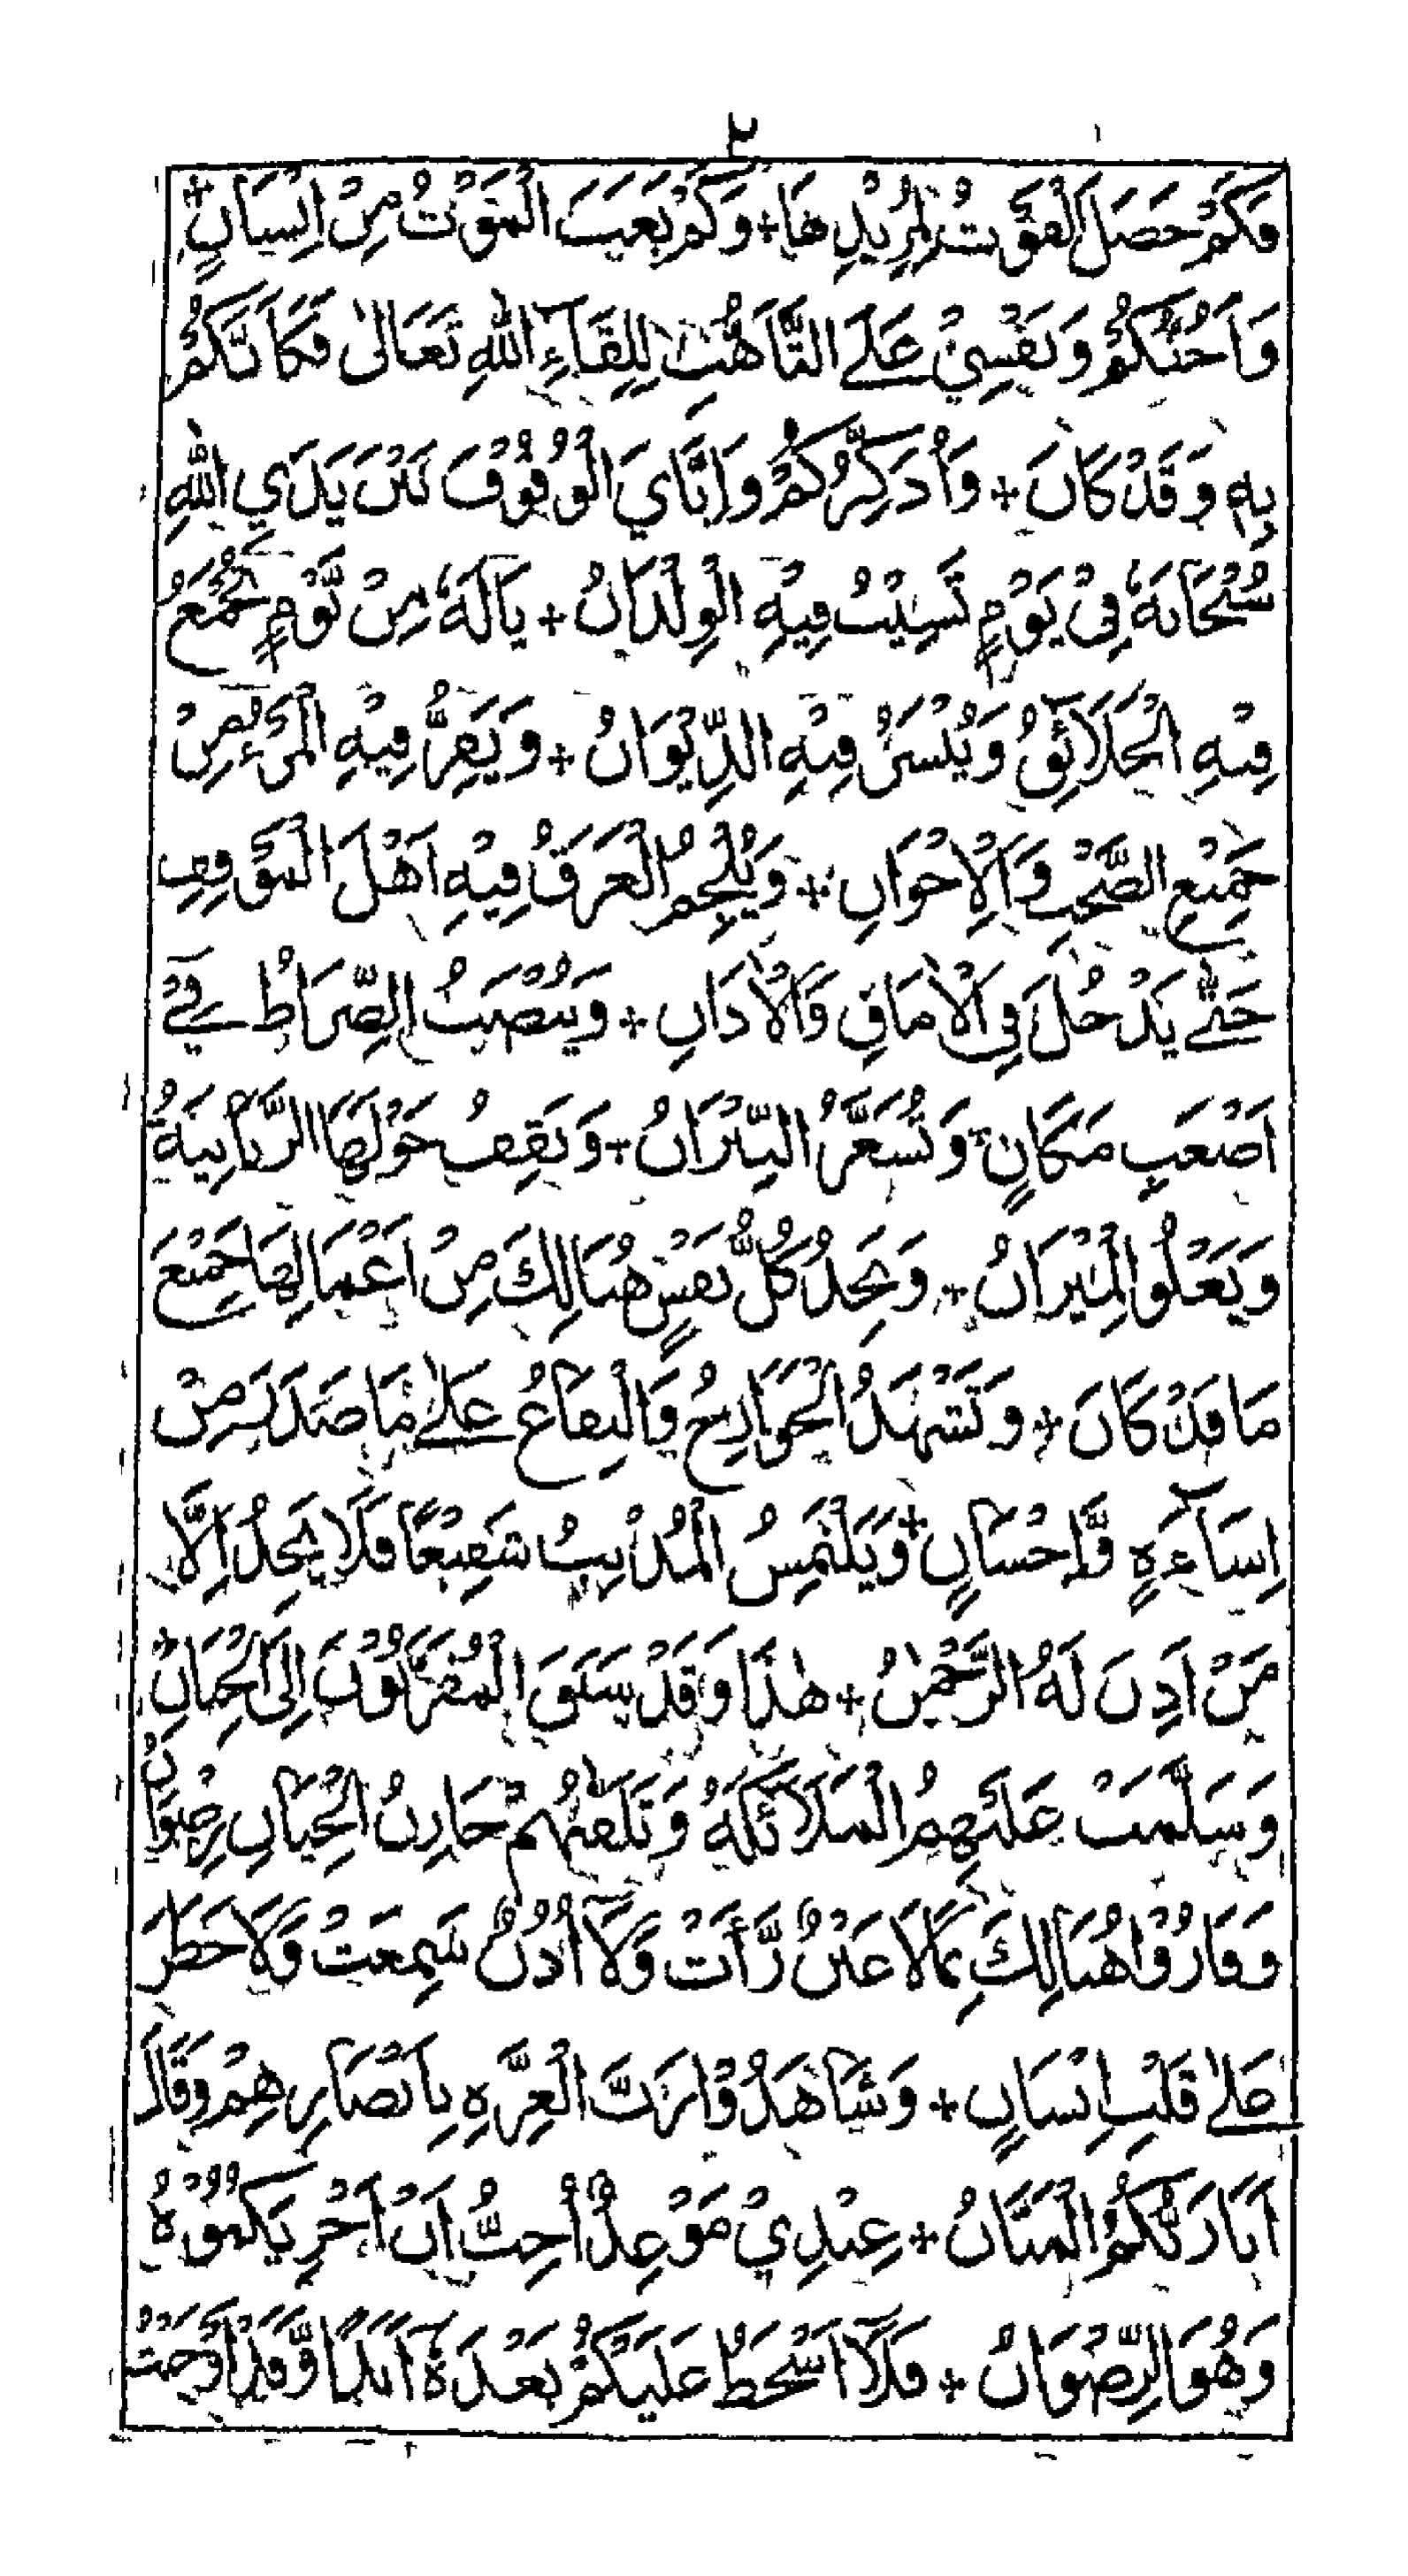 ٢
فَكَمْ حَصَلَ الْفَوْتُ لِمُرِيْدِهَا + وَكَمْ بَغَتَ الْمَوْتُ مِنْ اِنْسَانٍ +
وَاَحُثُّكُمْ وَنَفْسِيْ عَلَے التَّاَهُّبِ لِلِقَآءِ اللهِ تَعَالٰى فَكَاَنَّكُمْ
بِهٖ وَقَدْ كَانَ + وَاُذَكِّرُكُمْ وَاِيَّايَ الْوُقُوْفَ بَيْنَ يَدَيِ اللهِ
سُبْحَانَهٗ فِيْ يَوْمٍ تَشِيْبُ فِيْهِ الْوِلْدَانُ + يَالَهٗ مِنْ يَّوْمٍ تُجْمَعُ
فِيْهِ الْخَلَآئِقُ وَيُنْشَرُ فِيْهِ الدِّيْوَانُ + وَيَفِرُّ فِيْهِ الْمَرْءُ مِنْ
جَمِيْعِ الصَّحْبِ وَالْاِخْوَانِ + وَيُلْجِمُ الْعَرَقُ فِيْهِ اَهْلَ الْمَوْقِفِ
حَتّٰے يَدْخُلَ فِي الْاٰمَاقِ وَالْاٰذَانِ + وَيُنْصَبُ الصِّرَاطُ فِيْ
اَصْعَبِ مَكَانٍ + وَتُسَعَّرُ النِّيْرَانُ + وَيَقِفُ حَوْلَهَا الزَّبَانِيَةُ
وَيَعْلُو الْمِيْزَانُ + وَتَجِدُ كُلُّ نَفْسٍ هُنَالِكَ مِنْ اَعْمَالِهَا جَمِيْعَ
مَا قَدْ كَانَ + وَتَشْهَدُ الْجَوَارِحُ وَالْبِقَاعُ عَلٰے مَا صَدَرَ مِنْ
اِسَآءَةٍ وَّاِحْسَانٍ + وَيَلْتَمِسُ الْمُذْنِبُ شَفِيْعًا فَلَا يَجِدُ اِلَّا
مَنْ اَذِنَ لَهُ الرَّحْمٰنُ + هٰذَا وَقَدْ سَبَقَ الْمُقَرَّبُوْنَ اِلَى الْجِنَانِ +
وَسَلَّمَتْ عَلَيْهِمُ الْمَلَآئِكَةُ وَتَلَقّٰهُمْ خَازِنُ الْجِنَانِ رِضْوَانُ
وَفَازُوْا هُنَالِكَ بِمَا لَا عَيْنٌ رَّأَتْ وَلَآ اُذُنٌ سَمِعَتْ وَلَا خَطَرَ
عَلٰے قَلْبِ اِنْسَانٍ + وَشَاهَدُوْا رَبَّ الْعِزَّةِ بِاَبْصَارِهِمْ وَقَالَ
اَنَا رَبُّكُمُ الْمَنَّانُ + عِنْدِيْ مَوْعِدٌ اُحِبُّ اَنْ اُنْجِزَيَكُمُوْهُ
وَهُوَ الرِّضْوَانُ + فَلَآ اَسْخَطُ عَلَيْكُمْ بَعْدَهٗٓ اَبَدًا وَّقَدْ اَوْجَبْتُ